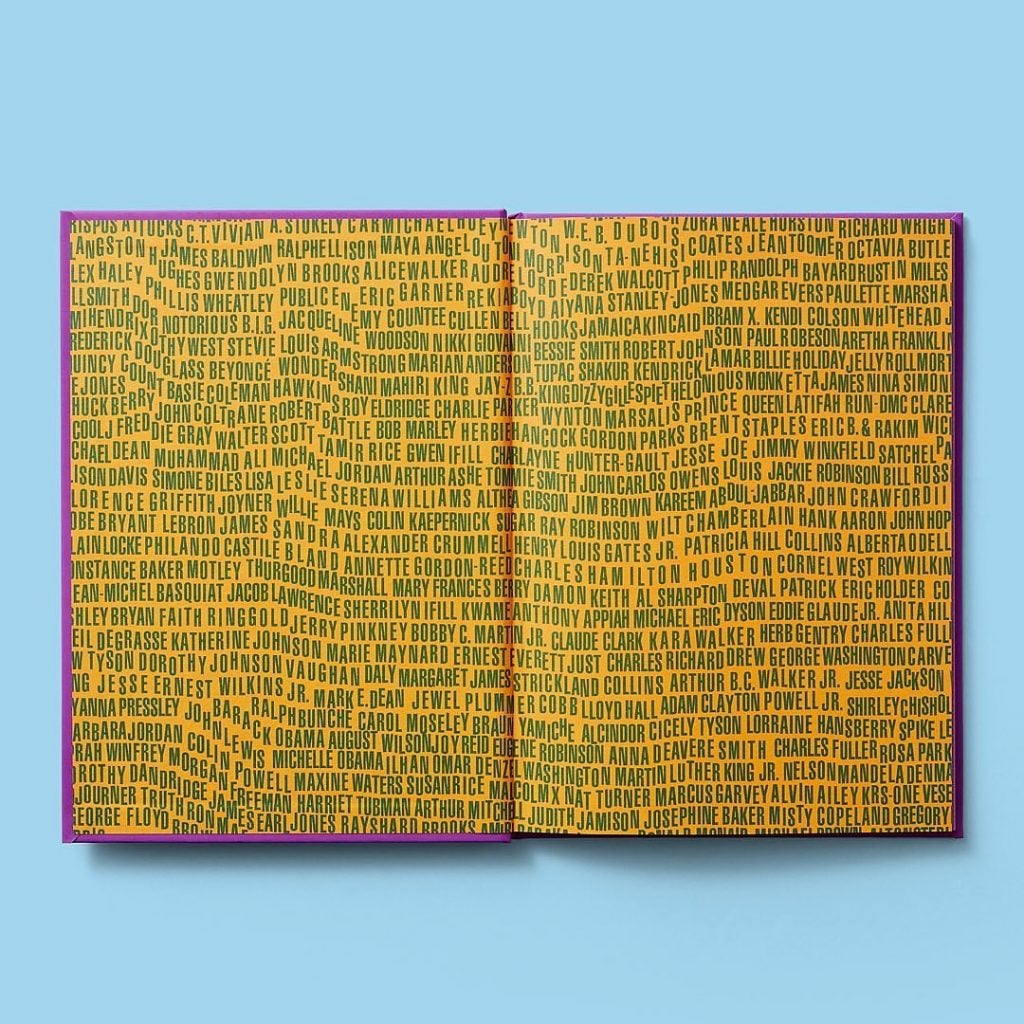 ISPUS ATTUCKS C.T. VIVIAN A. STOKELY CARMICHAEL HUEY NEWTON W.E.B. DU BOIS ZORA NEALE HURSTON RICHARD WRIGH
LANGSTON JAMES BALDWIN RALPH ELLISON MAYA ANGELOU TONI MORRISON TA-NEHISI COATES JEAN TOOMER OCTAVIA BUTLE
LEX HALEY HUGHES GWENDOLYN BROOKS ALICE WALKER AUDRE LORDE DEREK WALCOTT PHILIP RANDOLPH BAYARD RUSTIN MILES
LL SMITH DOR PHILLIS WHEATLEY PUBLIC ENEMY ERIC GARNER REKIA BOYD AIYANA STANLEY-JONES MEDGAR EVERS PAULETTE MARSHA
MI HENDRIX NOTORIOUS B.I.G. JACQUELINE WOODSON COUNTEE CULLEN BELL HOOKS JAMAICA KINCAID IBRAM X. KENDI COLSON WHITEHEAD J
REDERICK DOUGLASS KANYE WEST STEVIE WONDER LOUIS ARMSTRONG NIKKI GIOVANNI BESSIE SMITH ROBERT JOHNSON PAUL ROBESON ARETHA FRANKLI
UINCY COUNT BASIE BEYONCÉ MARIAN ANDERSON TUPAC SHAKUR KENDRICK LAMAR BILLIE HOLIDAY JELLY ROLL MORT
E JONES COLEMAN HAWKINS SHANI MAHIRI KING JAY-Z B.B. KING DIZZY GILLESPIE THELONIOUS MONK ETTA JAMES NINA SIMON
HUCK BERRY JOHN COLTRANE ROBERTS ROY ELDRIDGE CHARLIE PARKER WYNTON MARSALIS PRINCE QUEEN LATIFAH RUN-DMC CLARE
COOL J FREDDIE GRAY WALTER SCOTT BATTLE BOB MARLEY HERBIE HANCOCK GORDON PARKS BRENT STAPLES ERIC B. & RAKIM WIC
CHAEL DEAN MUHAMMAD ALI MICHAEL TAMIR RICE GWEN IFILL CHARLAYNE HUNTER-GAULT JESSE JOE JIMMY WINKFIELD SATCHEL PA
SON DAVIS SIMONE BILES LISA LESLIE JORDAN ARTHUR ASHE TOMMIE SMITH JOHN CARLOS OWENS LOUIS JACKIE ROBINSON BILL RUSS
LORENCE GRIFFITH JOYNER WILLIE SERENA WILLIAMS ALTHEA GIBSON JIM BROWN KAREEM ABDUL-JABBAR JOHN CRAWFORD II
OBE BRYANT LEBRON JAMES SANDRA MAYS COLIN KAEPERNICK SUGAR RAY ROBINSON WILT CHAMBERLAIN HANK AARON JOHN HOP
LAIN LOCKE PHILANDO CASTILE BLAND ALEXANDER CRUMMELL HENRY LOUIS GATES JR. PATRICIA HILL COLLINS ALBERTA ODELL
ONSTANCE BAKER MOTLEY THURGOOD MARSHALL ANNETTE GORDON-REED CHARLES HAMILTON HOUSTON CORNEL WEST ROY WILKIN
EAN-MICHEL BASQUIAT JACOB LAWRENCE MARY FRANCES BERRY DAMON KEITH AL SHARPTON DEVAL PATRICK ERIC HOLDER CO
HLEY BRYAN FAITH RINGGOLD SHERRILYN IFILL KWAME ANTHONY APPIAH MICHAEL ERIC DYSON EDDIE GLAUDE JR. ANITA HIL
EIL DEGRASSE KATHERINE JOHNSON JERRY PINKNEY BOBBY C. MARTIN JR. CLAUDE CLARK KARA WALKER HERB GENTRY CHARLES FULL
W TYSON DOROTHY JOHNSON VAUGHAN MARIE MAYNARD ERNEST EVERETT JUST CHARLES RICHARD DREW GEORGE WASHINGTON CARVE
NG JESSE ERNEST WILKINS JR. DALY MARGARET JAMES STRICKLAND COLLINS ARTHUR B.C. WALKER JR. JESSE JACKSON
YANNA PRESSLEY JOHN MARK E. DEAN JEWEL PLUMMER COBB LLOYD HALL ADAM CLAYTON POWELL JR. SHIRLEY CHISHOL
ARBARA JORDAN LEWIS BARACK RALPH BUNCHE CAROL MOSELEY BRAUN YAMICHE ALCINDOR CICELY TYSON LORRAINE HANSBERRY SPIKE LE
RAH WINFREY COLIN OBAMA AUGUST WILSON JOY REID EUGENE ROBINSON ANNA DEAVERE SMITH CHARLES FULLER ROSA PARK
ROTHY DANDRIDGE MORGAN POWELL MICHELLE OBAMA ILHAN OMAR DENZEL WASHINGTON MARTIN LUTHER KING JR. NELSON MANDELA DENMA
JOURNER TRUTH FREEMAN MAXINE WATERS SUSAN RICE MALCOLM X NAT TURNER MARCUS GARVEY ALVIN AILEY KRS-ONE VESE
EORGE FLOYD JAMES EARL JONES HARRIET TUBMAN ARTHUR MITCHELL JUDITH JAMISON JOSEPHINE BAKER MISTY COPELAND GREGORY
RAYSHARD BROOKS